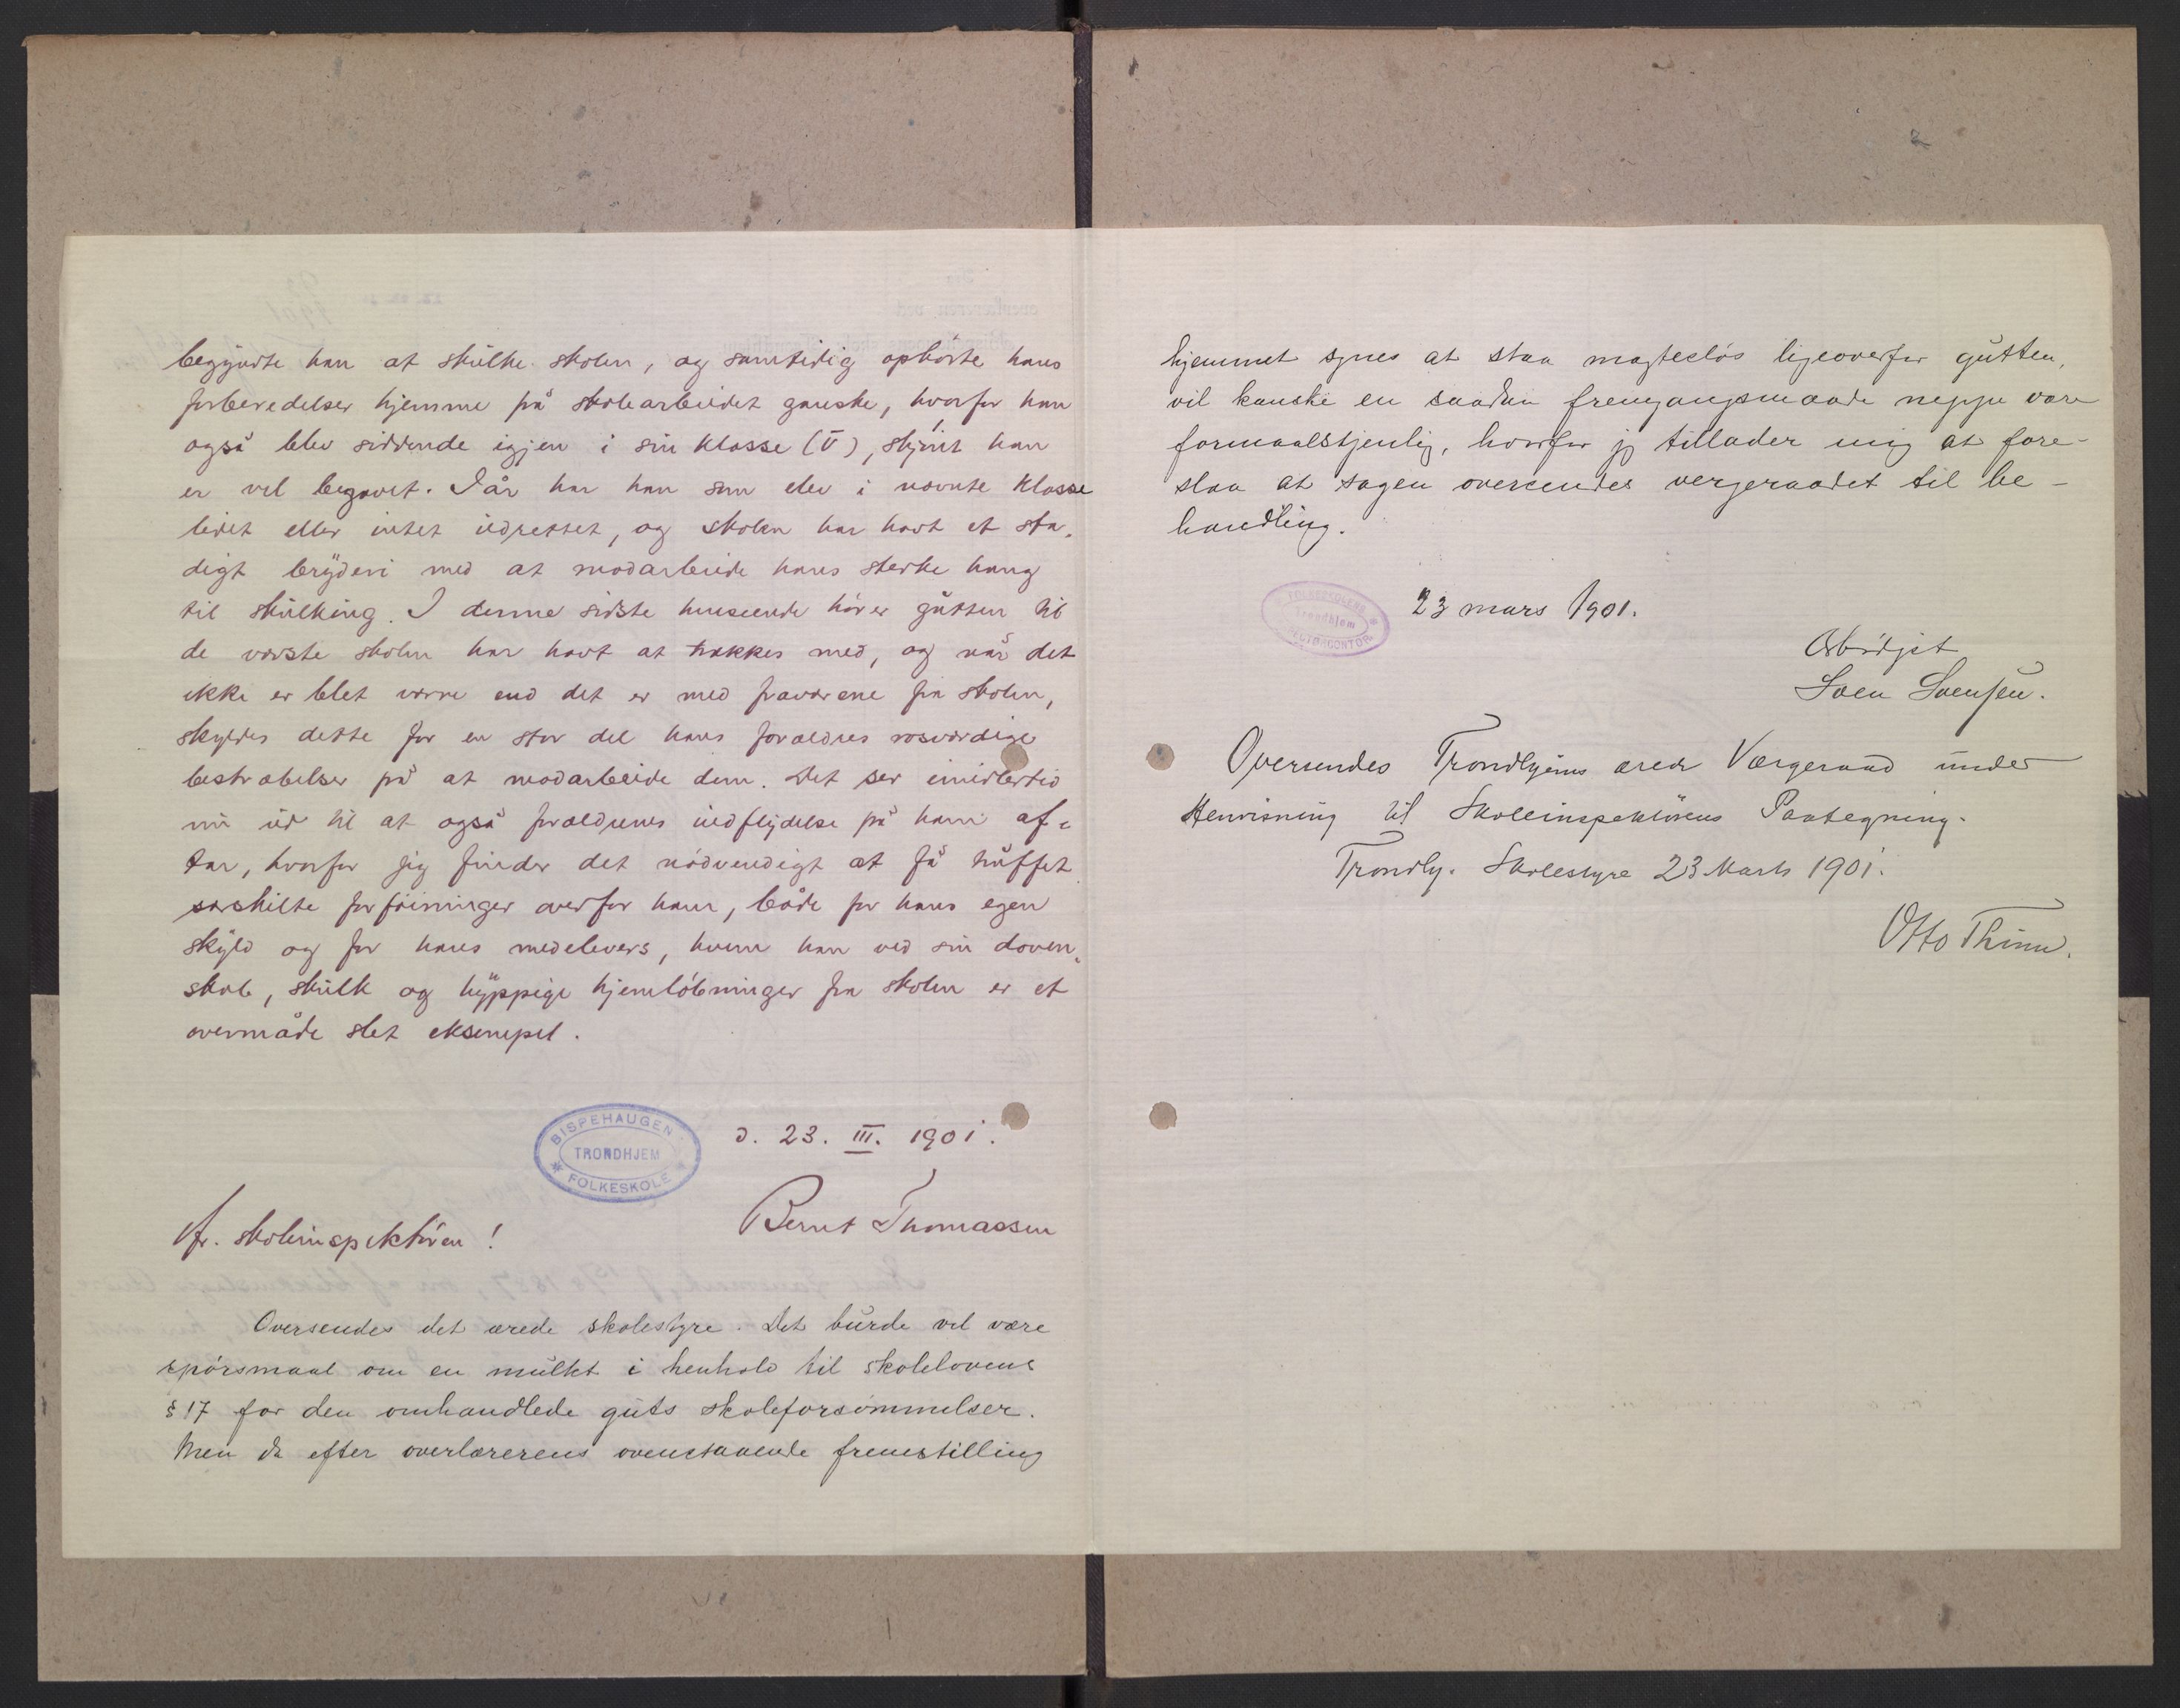 begynte han at skulke skolen, og samtidig ophörte hans
forberedelser hjemme på skolearbeidet ganske, hvorfor han
også blev siddende igjen i sin klasse (V), skjönt han
er vel begavet. I år har han som elev i nævnte klasse
lidet eller intet udrettet, og skolen har havt et sta-
digt bryderi med at modarbeide hans sterke hang
til skulking. I denne sidste henseende hörer gutten til
de værste skolen har havt at trækkes med, og når det
ikke er blet værre end det er med fraværene fra skolen,
skyldes dette for en stor del hans forældres rosværdige
bestræbelser på at modarbeide dem. Det ser imidlertid
nu ud til at også forældrenes indflydelse på ham af-
tar, hvorfor jeg finder det nödvendigt at få truffet
særskilte forföininger overfor ham, både for hans egen
skyld og for hans medelevers, hvem han ved sin doven-
skab, skulk og hyppige hjemlöbninger fra skolen er et
overmåde slet eksempel.
BISPEHAUGEN
TRONDHJEM
FOLKESKOLE
d. 23. III. 1901.
Bernt Thomassen
Hr. skoleinspektören!
Oversendes det ærede skolestyre. Det burde vel være
spörsmaal om en mulkt i henhold til skolelovens
§ 17 for den omhandlede guts skoleforsömmelser.
Men da efter overlærerens ovenstaaende fremstilling
hjemmet synes at staa magteslös ligeoverfor gutten,
vil kanske en saadan fremgangsmaade neppe være
formaalstjenlig, hvorfor jeg tillader mig at fore-
slaa at sagen oversendes vergeraadet til be-
handling.
FOLKESKOLENS
Trondhjem
23 mars 1901.
Ærbödigst
Sven Svensen.
Oversendes Trondhjems ærede Værgeraad under
Henvisning til Skoleinspektörens Paategning.
Trondhj. Skolestyre 23 Marts 1901.
Otto Thinn.